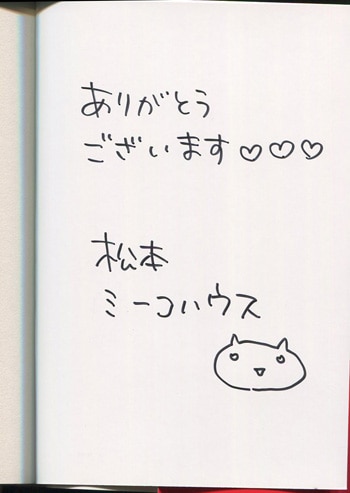 ありがとう
ございます♡♡♡
松本
ミーコハウス